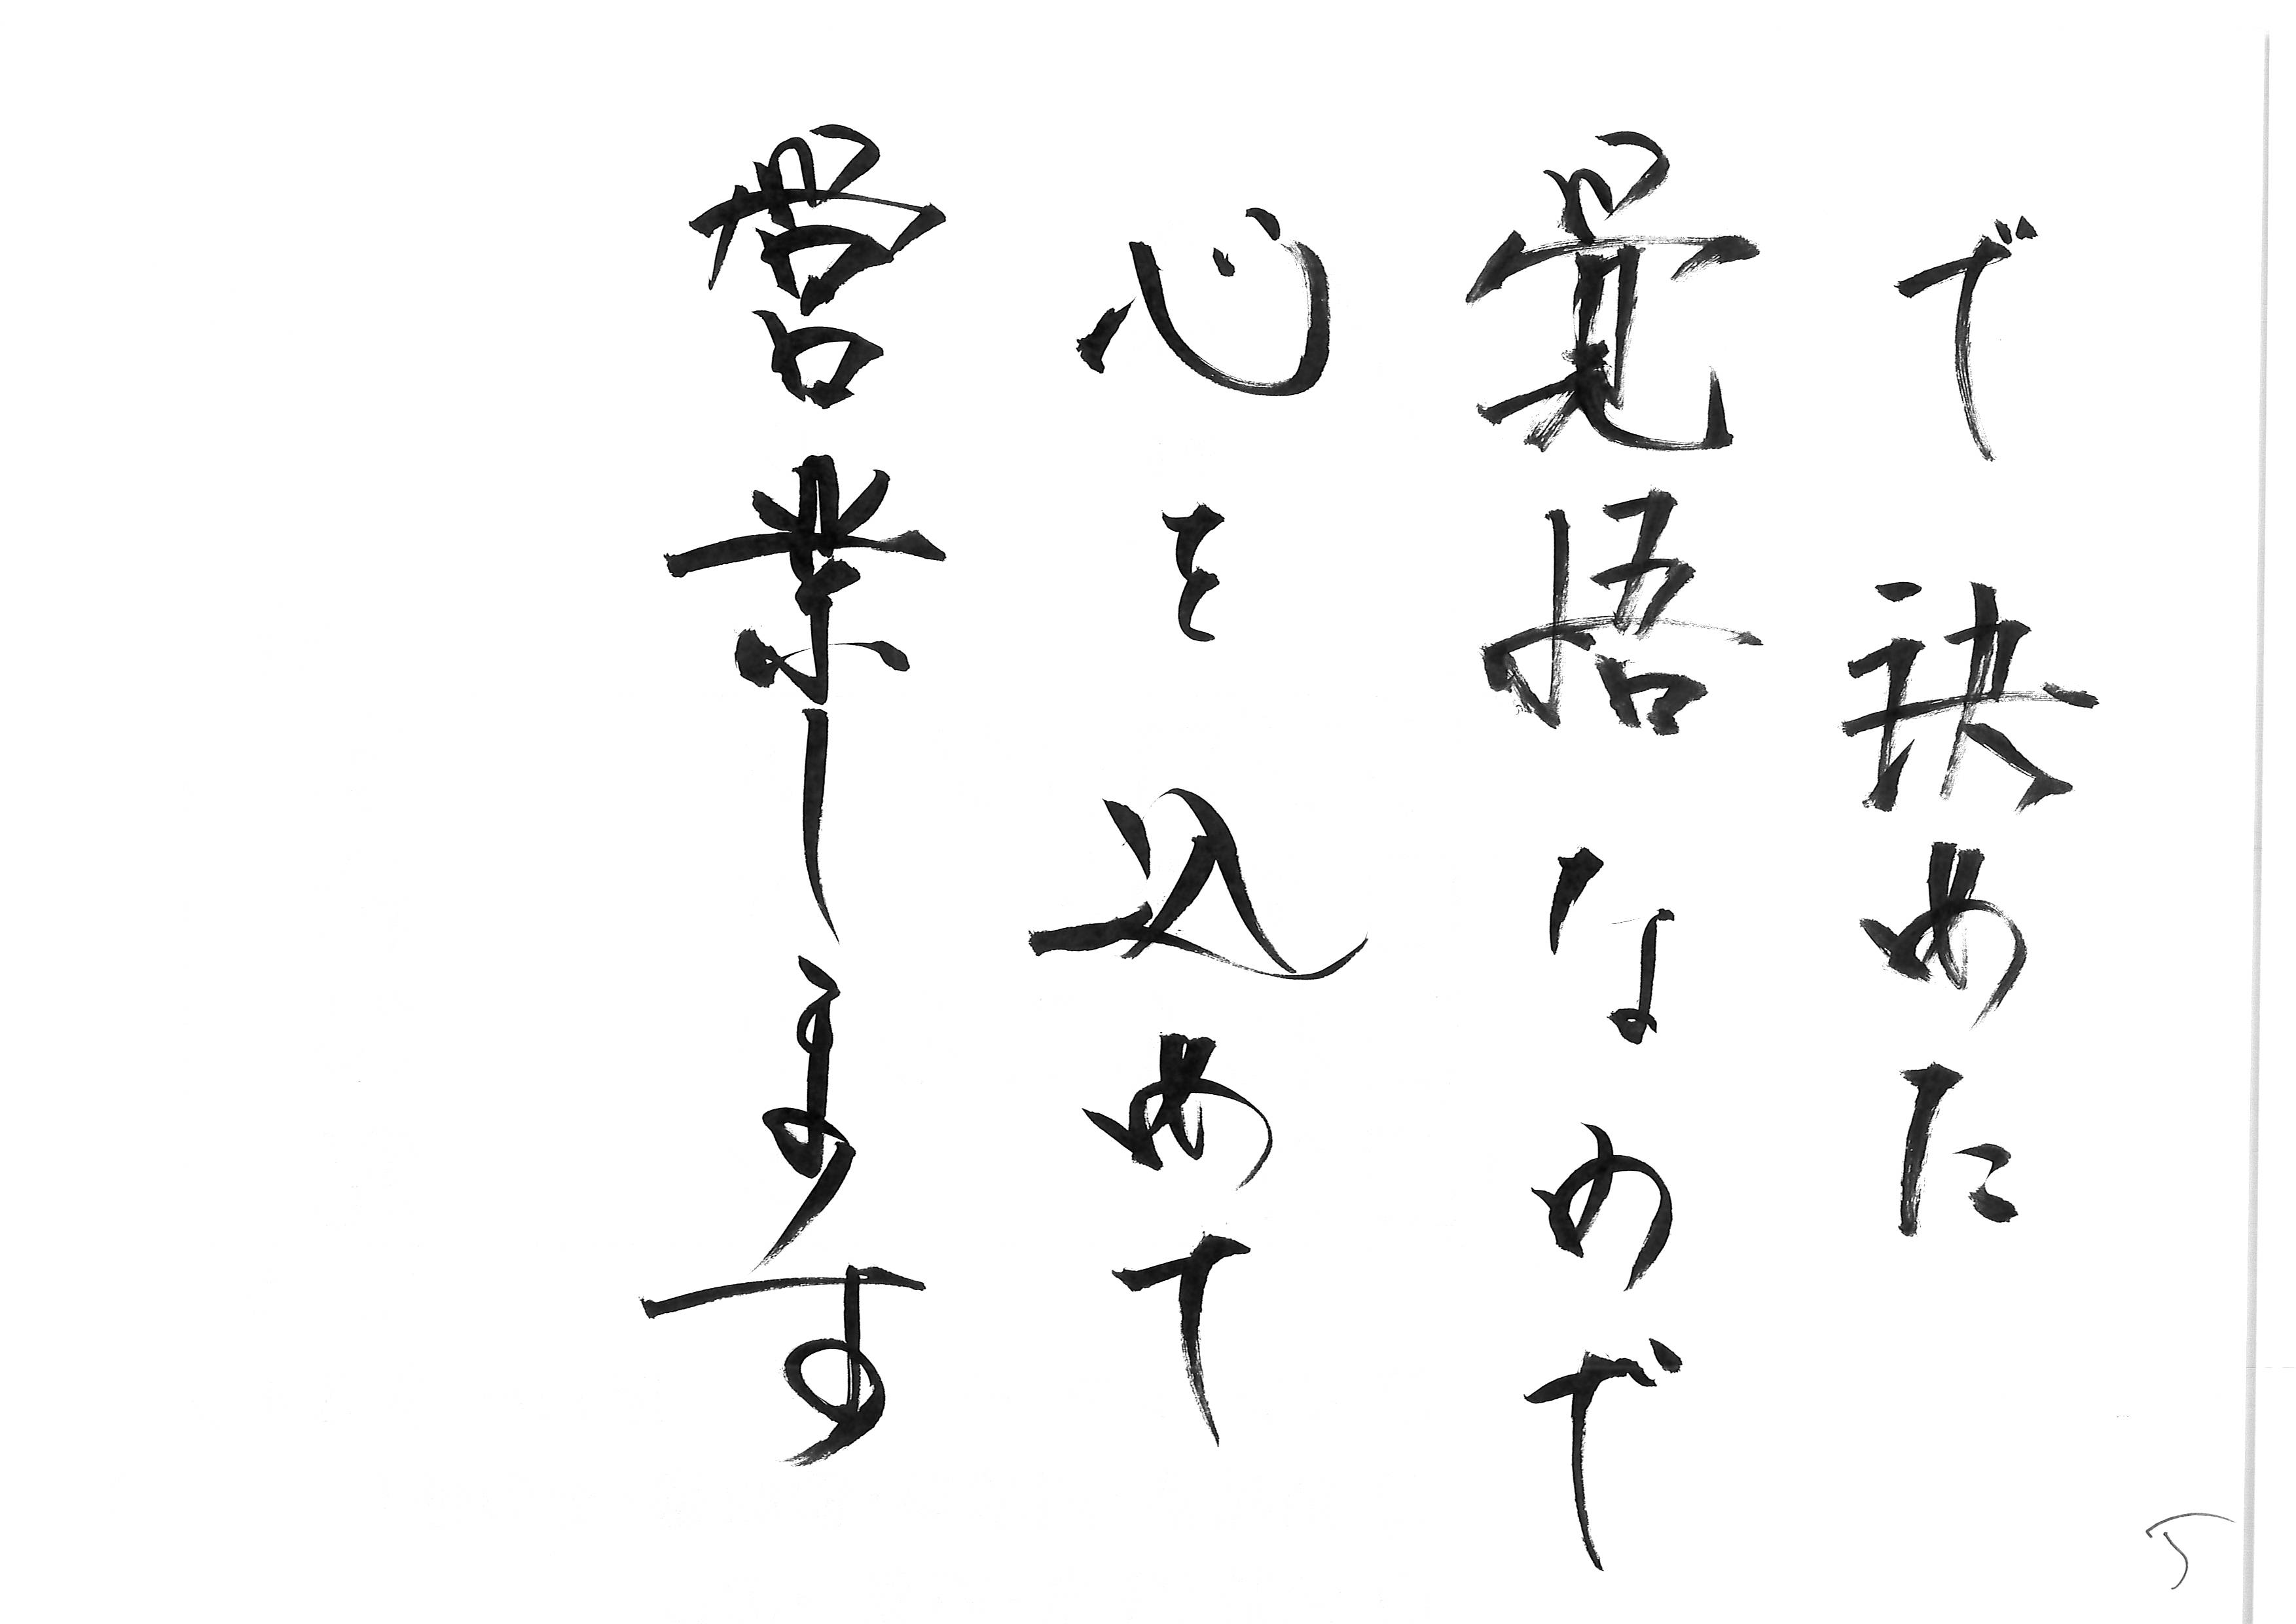 で決めた
覚悟なので
心を込めて
営業します
5